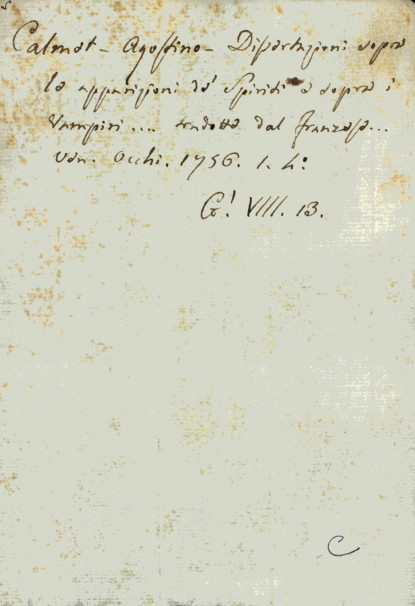 Calmet - Agostino - Dissertazioni sopra
le apparizioni de' Spiriti e sopra i
Vampiri .... tradotte dal franzese...
Ven. Occhi. 1756. 1. 4°
G! VIII. 13.
C